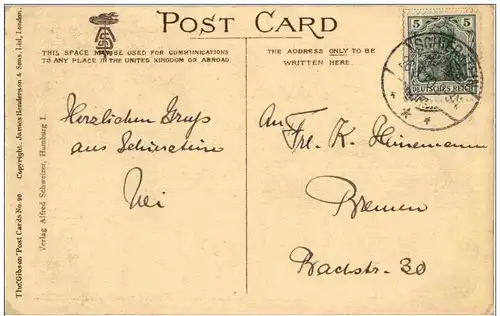 POST CARD
THIS SPACE MAY BE USED FOR COMMUNICATIONS
TO ANY PLACE IN THE UNITED KINGDOM OR ABROAD.
THE ADDRESS ONLY TO BE
WRITTEN HERE.
5 5
DEUTSCHES REICH
Herzlichen Gruß
aus
An
Frl. K. Heinemann
Bremen
Bachstr. 30
The "Gibson" Post Cards No. 90 Copyright. James Henderson & Sons, Ltd., London.
Verlag Alfred Schweizer, Hamburg I.